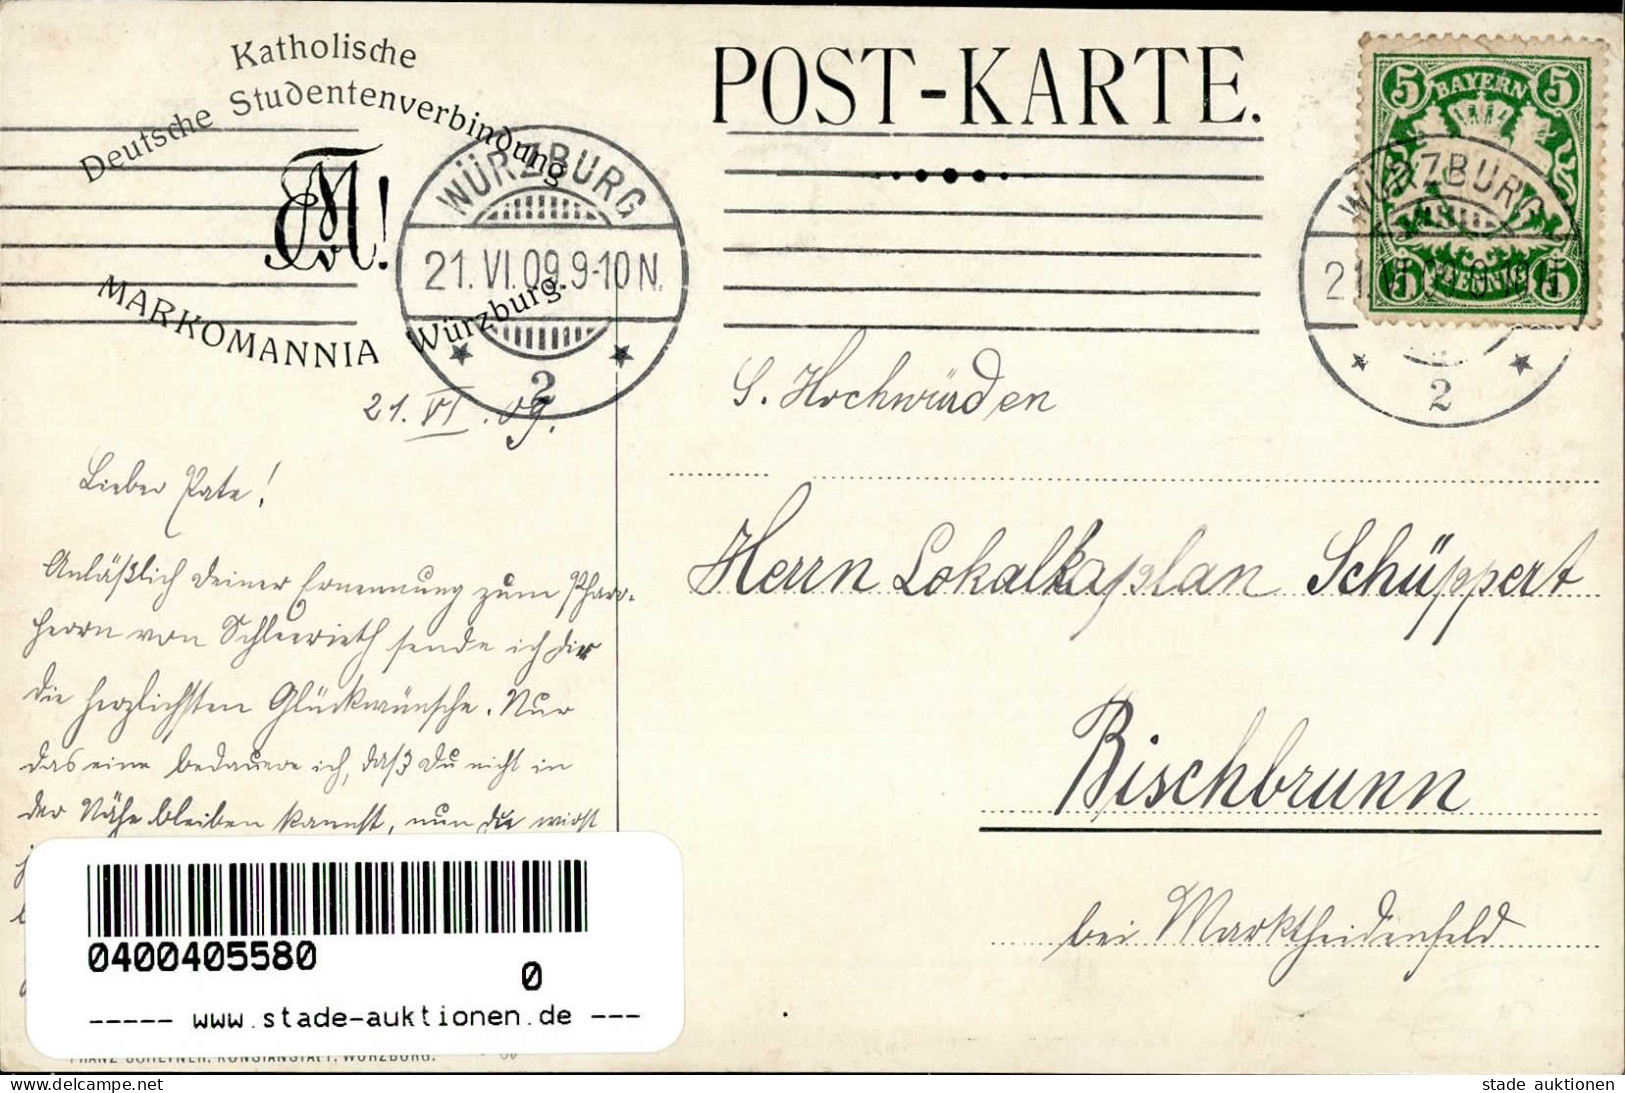 Katholische
Deutsche Studentenverbindung
MARKOMANNIA Würzburg.
POST-KARTE.
BAYERN
5 5
PFENNIG
5 5
WÜRZBURG
21. VI. 09. 9-10 N.
2
WÜRZBURG
2
21. VI. 09.
Lieber Pate!
Anläßlich deiner Ernennung zum Pfarr-
herrn von Schleerieth sende ich dir
die herzlichsten Glückwünsche. Nur
das eine bedauere ich, daß du nicht in
der Nähe bleiben kannst, nun du wirst
S. Hochwürden
Herrn Lokalkaplan Schüppert
Bischbrunn
bei Marktheidenfeld
0400405580
0
----- www.stade-auktionen.de ---
FRANZ SCHEINER, KUNSTANSTALT, WÜRZBURG.
www.delcampe.net
stade auktionen